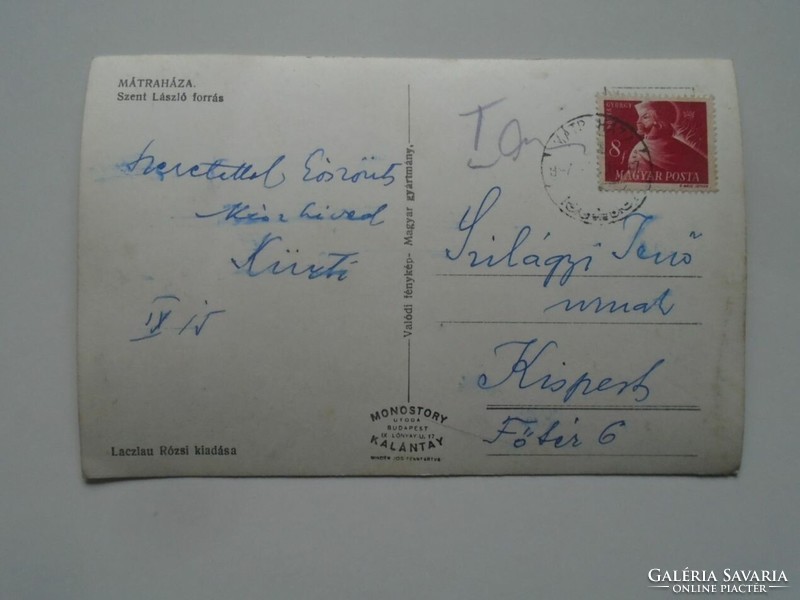 MÁTRAHÁZA.
Szent László forrás
Szeretettel
IX 15
Laczlau Rózsi kiadása
Valódi fénykép- Magyar gyártmány.
MONOSTORY
UTÓDA
BUDAPEST
IX LÓNYAY U. 17
KALANTAY
GYÖRGY
8f
MAGYAR POSTA
Szilágyi Jenő
urnak
Kispest
Főtér 6
GALÉRIA SAVARIA
ONLINE PIACTÉR